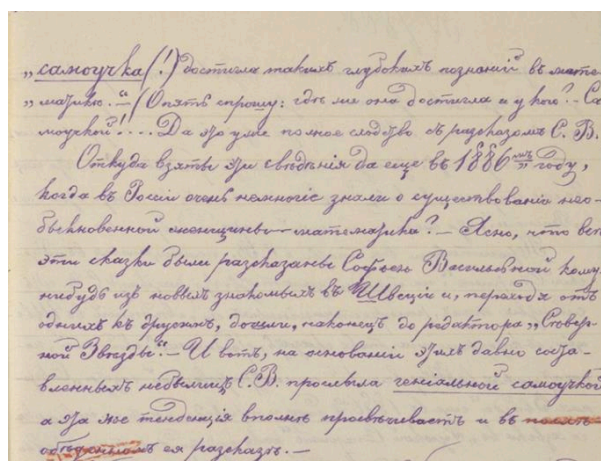 „самоучка(!) достигла такихъ глубокихъ познаній въ мате-
„матикѣ.“ – (Опять спрошу: гдѣ же она достигла и у кого? – Са-
моучкой!... Да это уже полное сходство съ разсказомъ С. В.
Откуда взяты эти свѣдѣнія да еще въ 1886мъ году,
когда въ Россіи очень немногіе знали о существованіи нео-
быкновенной женщины-математика? – Ясно, что всѣ
эти сказки были разсказаны Софьей Васильевной кому
нибудь изъ новыхъ знакомыхъ въ Швеціи и, переходя отъ
однихъ къ другимъ, дошли, наконецъ до редактора „Сѣвер-
ной Звѣзды“. – И вотъ, на основаніи этихъ давно соста-
вленныхъ небылицъ С. В. прослыла геніальной самоучкой
а эта же тенденція вполнѣ просвѣчиваетъ и въ
ея разсказѣ. –